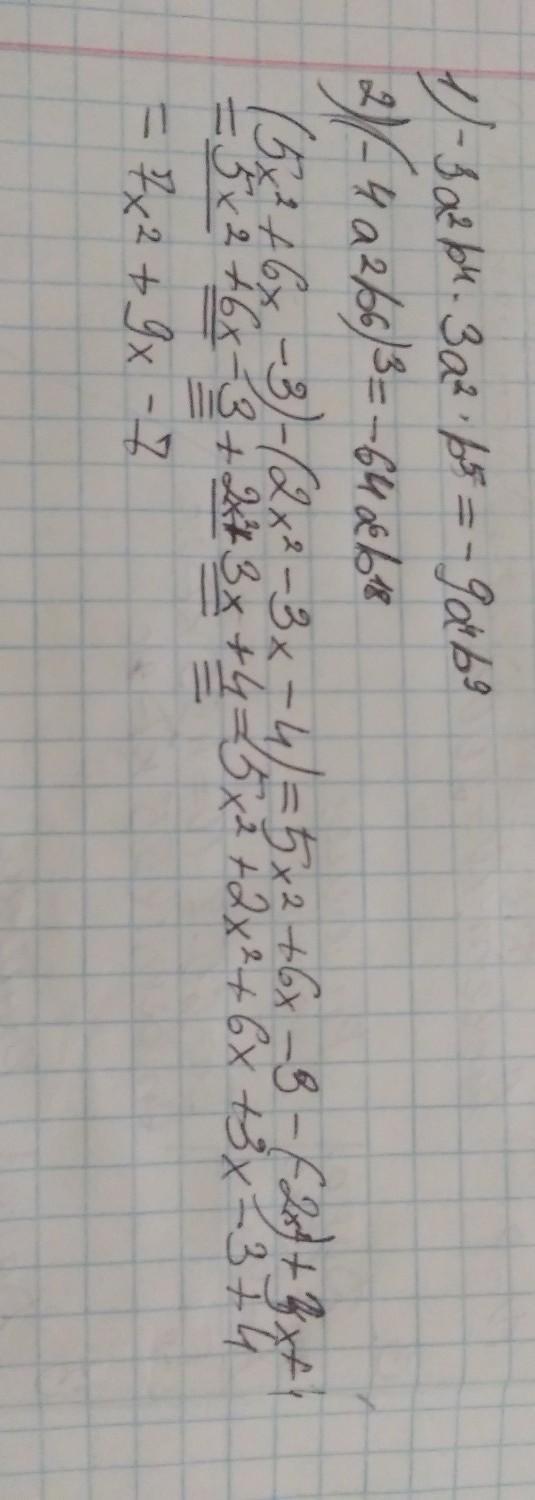 1) -3a²b⁴ · 3a² · b⁵ = -9a⁴b⁹
2) (-4a²b⁶)³ = -64a⁶b¹⁸
(5x² + 6x - 3) - (2x² - 3x - 4) = 5x² + 6x - 3 - (-2x²) + 3x +
= 5x² + 6x - 3 + 2x² + 3x + 4 = 5x² + 2x² + 6x + 3x - 3 + 4
= 7x² + 9x - 7